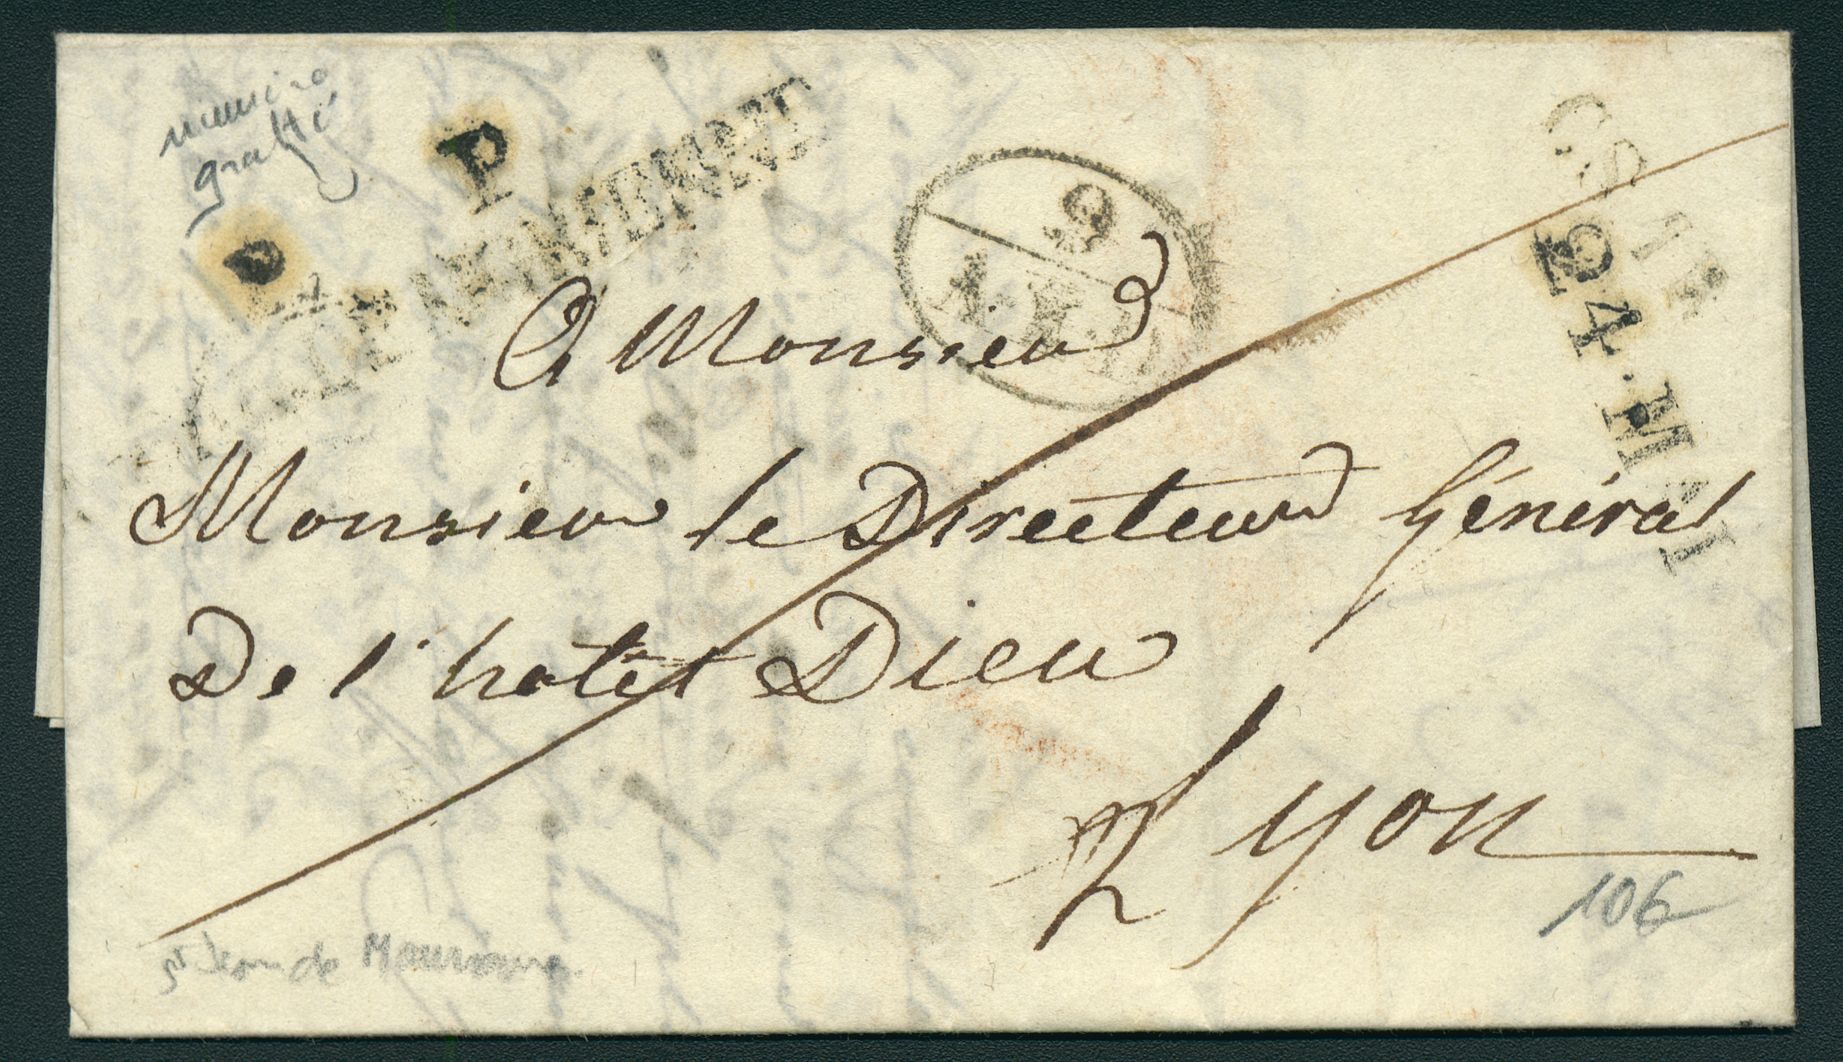 numéro
gratté
P P
9
24 · MAI
A Monsieur
Monsieur le Directeur Général
De l'hotel Dieu
Lyon
106
St Jean de Maurienne